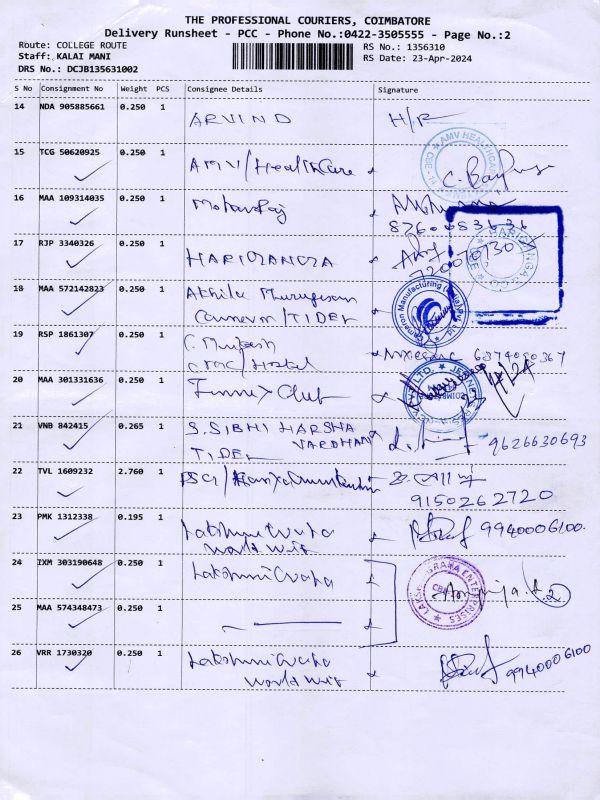 THE PROFESSIONAL COURIERS, COIMBATORE
Delivery Runsheet - PCC - Phone No.:0422-3505555 - Page No.:2
Route: COLLEGE ROUTE
Staff: KALAI MANI
DRS No.: DCJB135631002
RS No.: 1356310
RS Date: 23-Apr-2024
S No Consignment No Weight PCS Consignee Details Signature
14 NDA 905885661 0.250 1 ARVIND H/R
15 TCG 50620925 0.250 1 AMV/HealthCare
AMV HEALTHCARE
16 MAA 109314035 0.250 1 Mohanraj
17 RJP 3340326 0.250 1
18 MAA 572142823 0.250 1 Akhila Murugesan
Cameron/TIDEL
Cameron Manufacturing (India) Pvt. Ltd.
19 RSP 1861307 0.250 1 C. Mugesh
CMC/Hostel 6374080367
20 MAA 301331636 0.250 1 Club
21 VNB 842415 0.265 1 S.SIBHI HARSHA
VARDHAN
TIDEL 9626630693
22 TVL 1609232 2.760 1
9150262720
23 PMK 1312338 0.195 1 Lakshmi Graha
World Wide 9940006100.
24 IXM 303190648 0.250 1 Lakshmi Graha
GRAHA ENTERPRISES
25 MAA 574348473 0.250 1
26 VRR 1730320 0.250 1 Lakshmi Graha
World Wide 9940006100